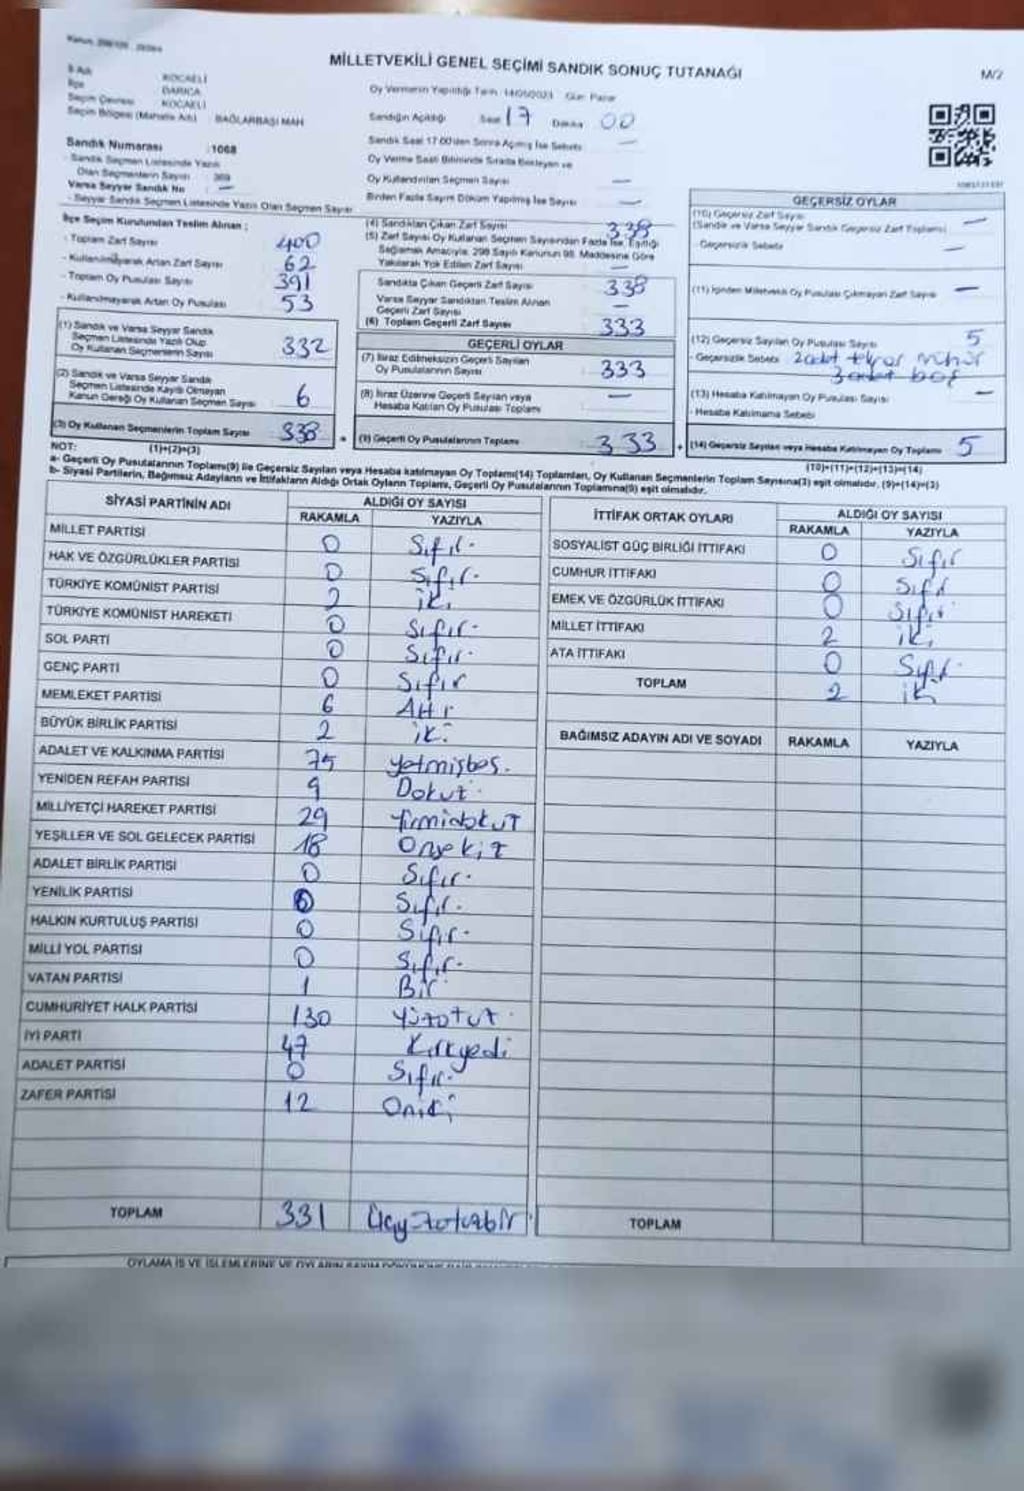 MİLLETVEKİLİ GENEL SEÇİMİ SANDIK SONUÇ TUTANAĞI
M/2
İl Adı : KOCAELİ
İlçe : DARICA
Seçim Çevresi : KOCAELİ
Seçim Bölgesi (Mahalle Adı) : BAĞLARBAŞI MAH
Oy Vermenin Yapıldığı Tarih : 14/05/2023 Gün: Pazar
Sandığın Açıldığı Saat 17 Dakika 00
Sandık Saat 17:00'den Sonra Açılmış İse Sebebi —
Oy Verme Saati Bitiminde Sırada Bekleyen ve
Oy Kullandırılan Seçmen Sayısı —
Birden Fazla Sayım Döküm Yapılmış İse Sayısı —
Sandık Numarası : 1068
- Sandık Seçmen Listesinde Yazılı
Olan Seçmenlerin Sayısı : 369
Varsa Seyyar Sandık No : —
- Seyyar Sandık Seçmen Listesinde Yazılı Olan Seçmen Sayısı
İlçe Seçim Kurulundan Teslim Alınan :
- Toplam Zarf Sayısı 400
- Kullanılmayarak Artan Zarf Sayısı 62
- Toplam Oy Pusulası Sayısı 391
- Kullanılmayarak Artan Oy Pusulası 53
(1) Sandık ve Varsa Seyyar Sandık
Seçmen Listesinde Yazılı Olup
Oy Kullanan Seçmenlerin Sayısı 332
(2) Sandık ve Varsa Seyyar Sandık
Seçmen Listesinde Kayıtlı Olmayan
Kanun Gereği Oy Kullanan Seçmen Sayısı 6
(3) Oy Kullanan Seçmenlerin Toplam Sayısı 338
(1)+(2)=(3)
(4) Sandıktan Çıkan Zarf Sayısı 338
(5) Zarf Sayısı Oy Kullanan Seçmen Sayısından Fazla İse, Eşitliği
Sağlamak Amacıyla, 298 Sayılı Kanunun 98. Maddesine Göre
Yakılarak Yok Edilen Zarf Sayısı —
Sandıkta Çıkan Geçerli Zarf Sayısı 338
Varsa Seyyar Sandıktan Teslim Alınan
Geçerli Zarf Sayısı —
(6) Toplam Geçerli Zarf Sayısı 333
GEÇERLİ OYLAR
(7) İtiraz Edilmeksizin Geçerli Sayılan
Oy Pusulalarının Sayısı 333
(8) İtiraz Üzerine Geçerli Sayılan veya
Hesaba Katılan Oy Pusulası Toplamı —
= (9) Geçerli Oy Pusulalarının Toplamı 333
GEÇERSİZ OYLAR
(10) Geçersiz Zarf Sayısı —
(Sandık ve Varsa Seyyar Sandık Geçersiz Zarf Toplamı)
- Geçersizlik Sebebi —
(11) İçinden Milletvekili Oy Pusulası Çıkmayan Zarf Sayısı —
(12) Geçersiz Sayılan Oy Pusulası Sayısı 5
- Geçersizlik Sebebi 2 adet tekrar mühür
3 adet boş
(13) Hesaba Katılmayan Oy Pusulası Sayısı —
- Hesaba Katılmama Sebebi
+ (14) Geçersiz Sayılan veya Hesaba Katılmayan Oy Toplamı 5
(10)+(11)+(12)+(13)=(14)
NOT:
a- Geçerli Oy Pusulalarının Toplamı(9) ile Geçersiz Sayılan veya Hesaba katılmayan Oy Toplamı(14) Toplamları, Oy Kullanan Seçmenlerin Toplam Sayısına(3) eşit olmalıdır. (9)+(14)=(3)
b- Siyasi Partilerin, Bağımsız Adayların ve İttifakların Aldığı Ortak Oyların Toplamı, Geçerli Oy Pusulalarının Toplamına(9) eşit olmalıdır.
SİYASİ PARTİNİN ADI ALDIĞI OY SAYISI
RAKAMLA YAZIYLA
MİLLET PARTİSİ 0 Sıfır.
HAK VE ÖZGÜRLÜKLER PARTİSİ 0 Sıfır.
TÜRKİYE KOMÜNİST PARTİSİ 2 iki
TÜRKİYE KOMÜNİST HAREKETİ 0 Sıfır.
SOL PARTİ 0 Sıfır.
GENÇ PARTİ 0 Sıfır
MEMLEKET PARTİSİ 6 Altı
BÜYÜK BİRLİK PARTİSİ 2 iki
ADALET VE KALKINMA PARTİSİ 75 yetmişbeş.
YENİDEN REFAH PARTİSİ 9 Dokuz.
MİLLİYETÇİ HAREKET PARTİSİ 29 Yirmidokuz
YEŞİLLER VE SOL GELECEK PARTİSİ 18 Onsekiz
ADALET BİRLİK PARTİSİ 0 Sıfır.
YENİLİK PARTİSİ 0 Sıfır.
HALKIN KURTULUŞ PARTİSİ 0 Sıfır.
MİLLİ YOL PARTİSİ 0 Sıfır.
VATAN PARTİSİ 1 Bir
CUMHURİYET HALK PARTİSİ 130 Yüzotuz.
İYİ PARTİ 47 Kırkyedi
ADALET PARTİSİ 0 Sıfır.
ZAFER PARTİSİ 12 Oniki
TOPLAM 331 Üçyüzotuzbir
İTTİFAK ORTAK OYLARI ALDIĞI OY SAYISI
RAKAMLA YAZIYLA
SOSYALİST GÜÇ BİRLİĞİ İTTİFAKI 0 Sıfır
CUMHUR İTTİFAKI 0 Sıfır
EMEK VE ÖZGÜRLÜK İTTİFAKI 0 Sıfır
MİLLET İTTİFAKI 2 iki
ATA İTTİFAKI 0 Sıfır.
TOPLAM 2 iki
BAĞIMSIZ ADAYIN ADI VE SOYADI RAKAMLA YAZIYLA
TOPLAM